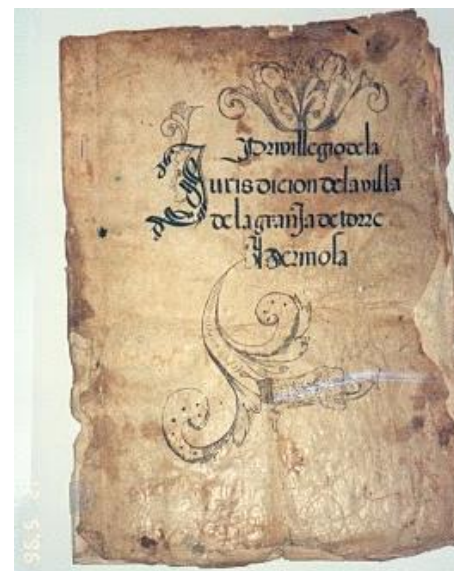 Privillegio de la
Jurisdicion de la villa
de la granJa de torre
hermosa
96.5.2